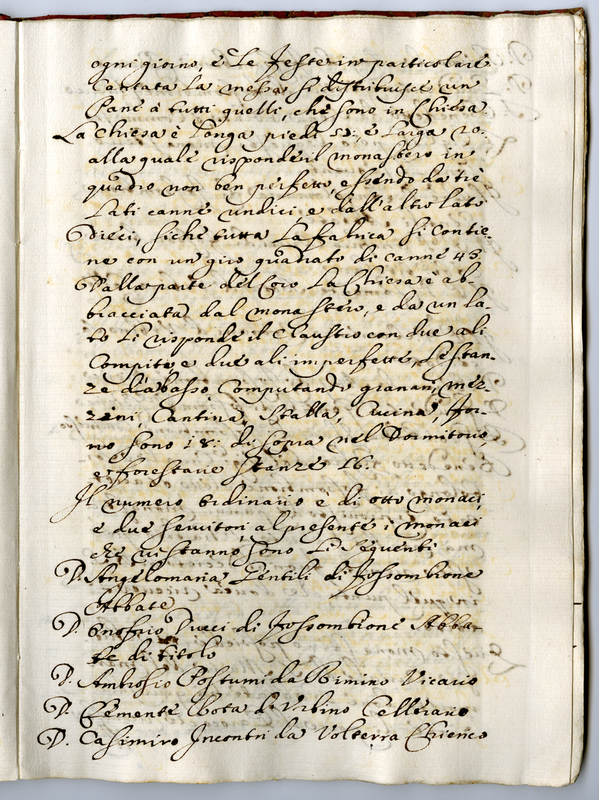 ogni giorno, e Le feste in particolare
Cantata La messa si distribuisce un
Pane à tutti quelli, che sono in Chiesa
La Chiesa è Longa piedi 52: e Larga 20.
alla quale risponde il monastero in
quadro non ben perfetto, essendo da tre
Lati canne undici, e dall'altro lato
Dieci, siche tutta La fabrica si contie-
ne con un giro quadrato di canne 43
Dalla parte del Coro La Chiesa è ab-
bracciata dal monastero, e da un la-
to Li risponde il Claustro con due ali
Compite, e due ali imperfette, Le stan-
ze da basso, Computando granari, mez-
zani, Cantina, Stalla, Cucina, for-
no sono 18: di sopra nel Dormitorio
e foresterie stanze 16:
Il numero Ordinario è di otto monaci,
e due servitori, al presente i monaci
che vi stanno, sono Li sequenti
D. Angelomaria Gentili di fossombrone
Abbate
D. Onofrio Ducci di fossombrone Abba-
te di titolo
D. Ambrosio Postumi da Rimino Vicario
D. Clemente da Urbino Cellerario
D. Casimiro Incontri da Volterra Chierico